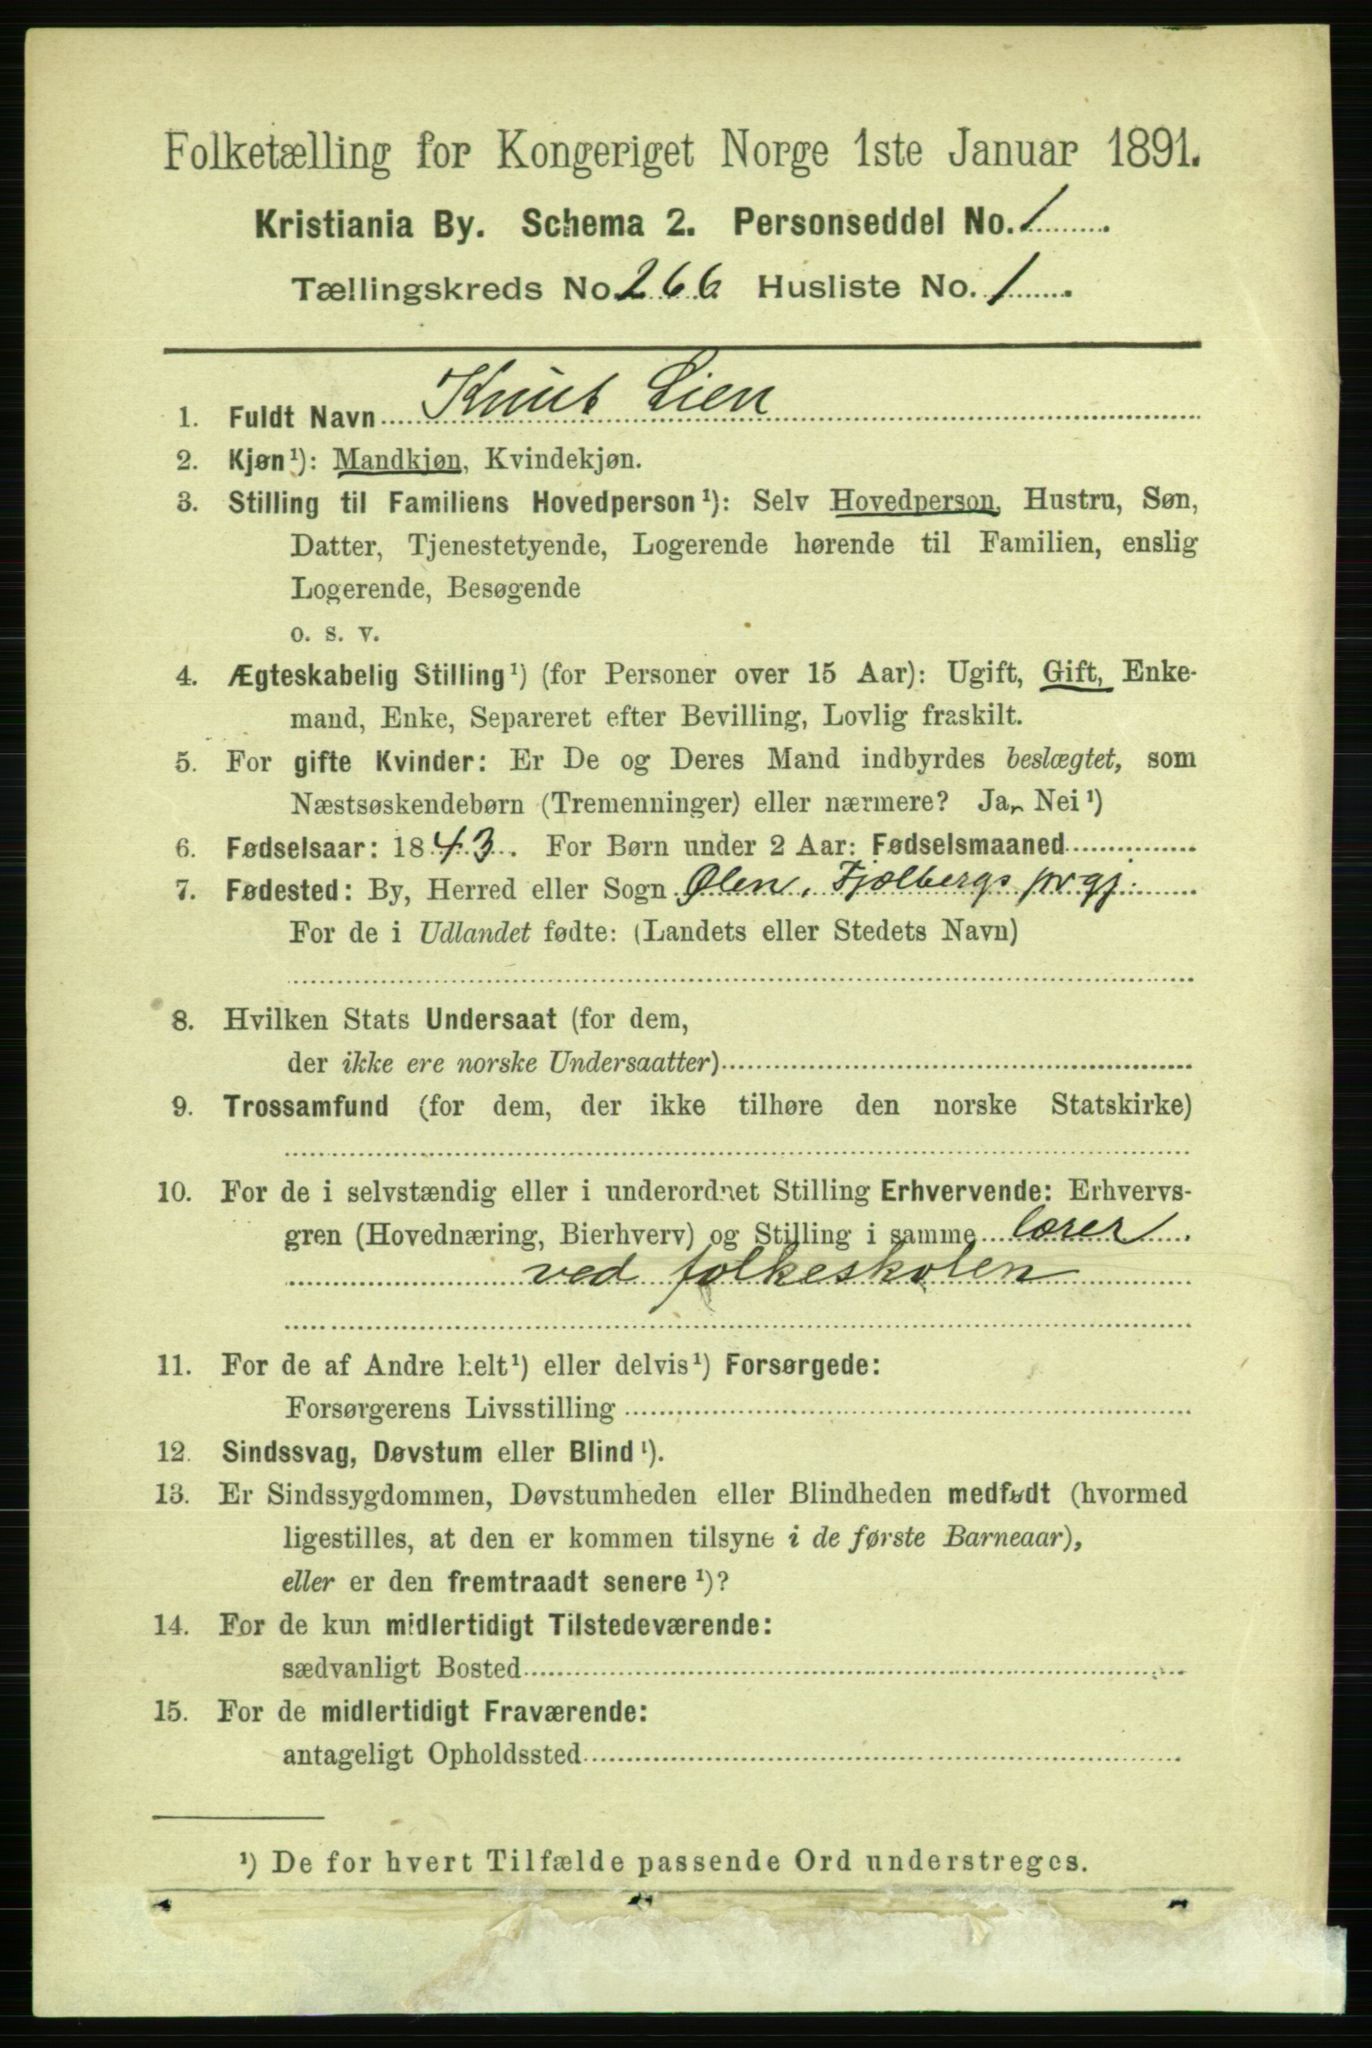 Folketælling for Kongeriget Norge 1ste Januar 1891.
Kristiania By. Schema 2. Personseddel No. 1
Tællingskreds No. 266 Husliste No. 1
1. Fuldt Navn Knut Lien
2. Kjøn¹): Mandkjøn, Kvindekjøn.
3. Stilling til Familiens Hovedperson¹): Selv Hovedperson, Hustru, Søn,
Datter, Tjenestetyende, Logerende hørende til Familien, enslig
Logerende, Besøgende
o. s. v.
4. Ægteskabelig Stilling¹) (for Personer over 15 Aar): Ugift, Gift, Enke-
mand, Enke, Separeret efter Bevilling, Lovlig fraskilt.
5. For gifte Kvinder: Er De og Deres Mand indbyrdes beslægtet, som
Næstsøskendebørn (Tremenninger) eller nærmere? Ja, Nei¹)
6. Fødselsaar: 1843. For Børn under 2 Aar: Fødselsmaaned
7. Fødested: By, Herred eller Sogn Ølen, Fjælbergs prgj.
For de i Udlandet fødte: (Landets eller Stedets Navn)
8. Hvilken Stats Undersaat (for dem,
der ikke ere norske Undersaatter)
9. Trossamfund (for dem, der ikke tilhøre den norske Statskirke)
10. For de i selvstændig eller i underordnet Stilling Erhvervende: Erhvervs-
gren (Hovednæring, Bierhverv) og Stilling i samme lærer
ved folkeskolen
11. For de af Andre helt¹) eller delvis¹) Forsørgede:
Forsørgerens Livsstilling
12. Sindssvag, Døvstum eller Blind¹).
13. Er Sindssygdommen, Døvstumheden eller Blindheden medfødt (hvormed
ligestilles, at den er kommen tilsyne i de første Barneaar),
eller er den fremtraadt senere¹)?
14. For de kun midlertidigt Tilstedeværende:
sædvanligt Bosted
15. For de midlertidigt Fraværende:
antageligt Opholdssted
¹) De for hvert Tilfælde passende Ord understreges.